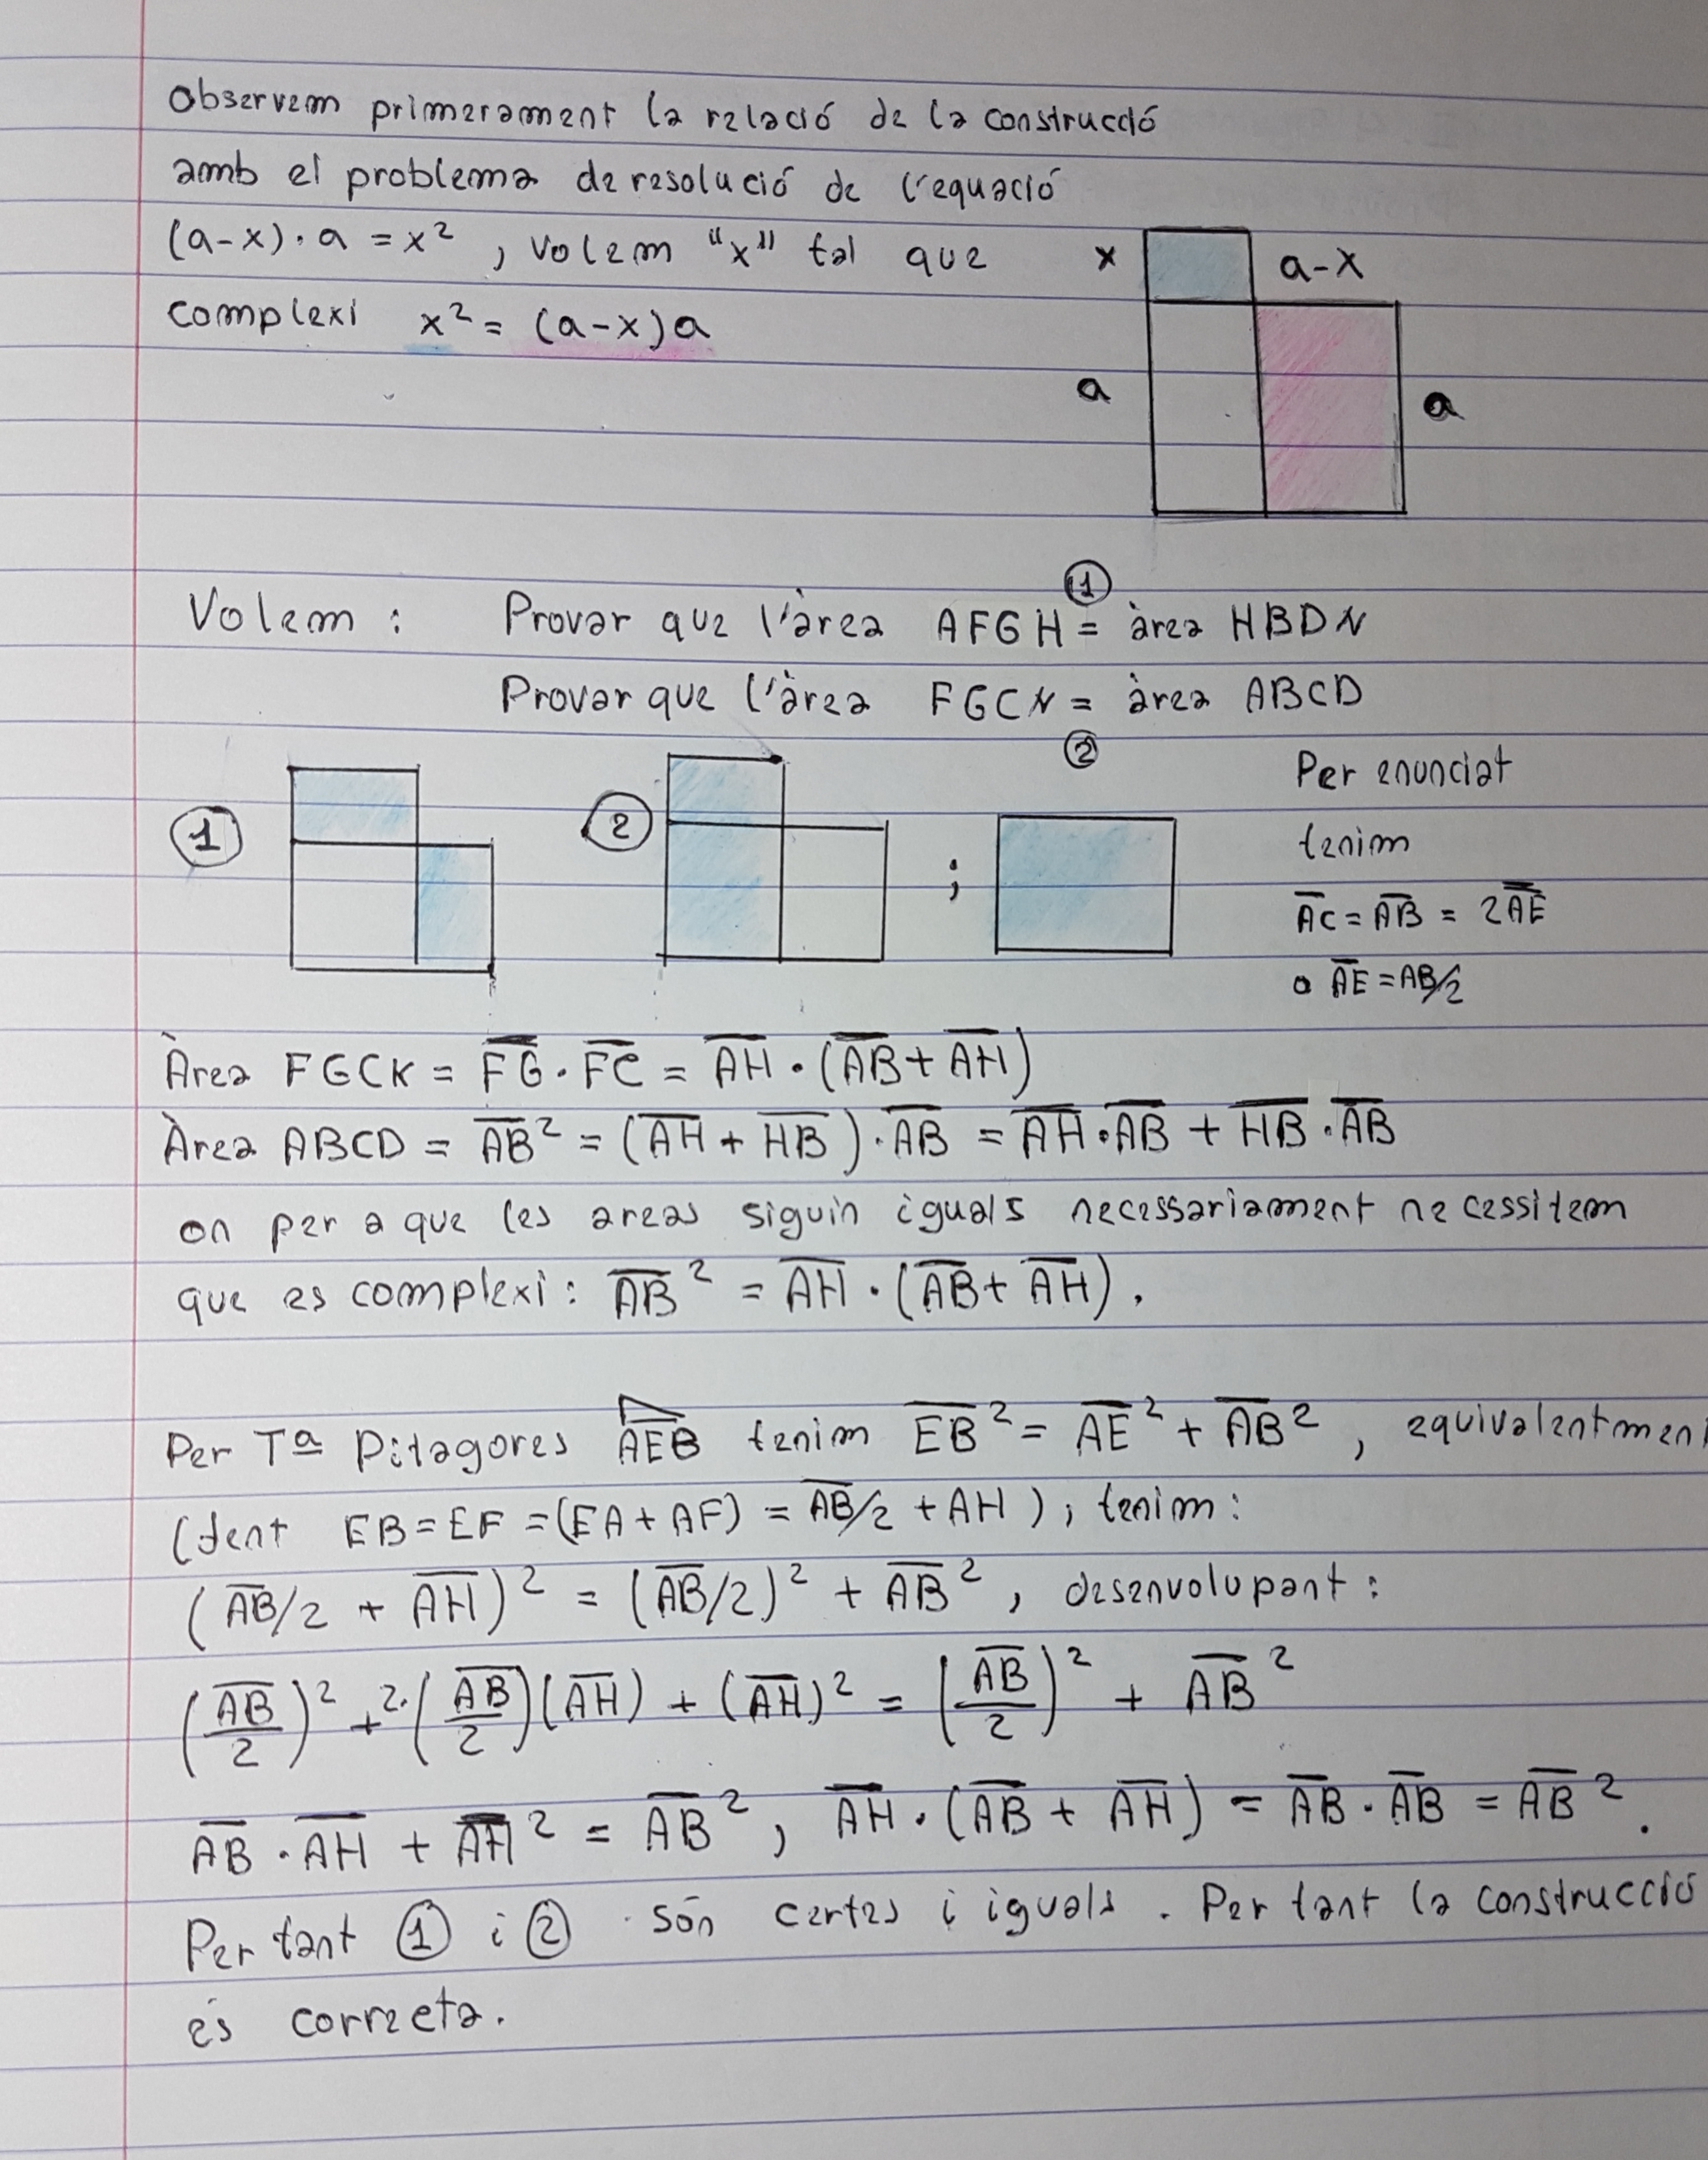 Observem primerament la relació de la construcció
amb el problema de resolució de l'equació
(a-x)·a = x², volem "x" tal que
complexi x² = (a-x)a
x
a-x
a
a
Volem : Provar que l'àrea AFGH = àrea HBDN
①
Provar que l'àrea FGCN = àrea ABCD
②
①
②
;
Per enunciat
tenim
A̅C = A̅B̅ = 2A̅E̅
o A̅E̅ = AB/2
Àrea FGCK = F̅G̅ · F̅C̅ = A̅H̅ · (A̅B̅ + A̅H̅)
Àrea ABCD = A̅B̅² = (A̅H̅ + H̅B̅)·A̅B̅ = A̅H̅·A̅B̅ + H̅B̅·A̅B̅
on per a que les areas siguin iguals necessariament necessitem
que es complexi: A̅B̅² = A̅H̅ · (A̅B̅ + A̅H̅).
Per Tª Pitagores A̅E̅B̅ tenim E̅B̅² = A̅E̅² + A̅B̅², equivalentment
(fent EB = EF = (EA + AF) = A̅B̅/2 + AH), tenim:
(A̅B̅/2 + A̅H̅)² = (A̅B̅/2)² + A̅B̅², desenvolupant:
(A̅B̅/2)² + 2·(A̅B̅/2)(A̅H̅) + (A̅H̅)² = (A̅B̅/2)² + A̅B̅²
A̅B̅ · A̅H̅ + A̅H̅² = A̅B̅², A̅H̅ · (A̅B̅ + A̅H̅) = A̅B̅ · A̅B̅ = A̅B̅².
Per tant ① i ② són certes i iguals. Per tant la construcció
és correcta.